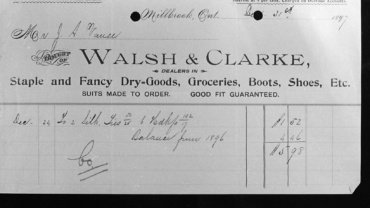 Millbrook, Ont. 189
Mr J. A. Vance
BOUGHT OF
WALSH & CLARKE,
DEALERS IN
Staple and Fancy Dry-Goods, Groceries, Boots, Shoes, Etc.
SUITS MADE TO ORDER. GOOD FIT GUARANTEED.
Dec. 24 To 2 Silk 6 $1 52
Balance June 1896
98